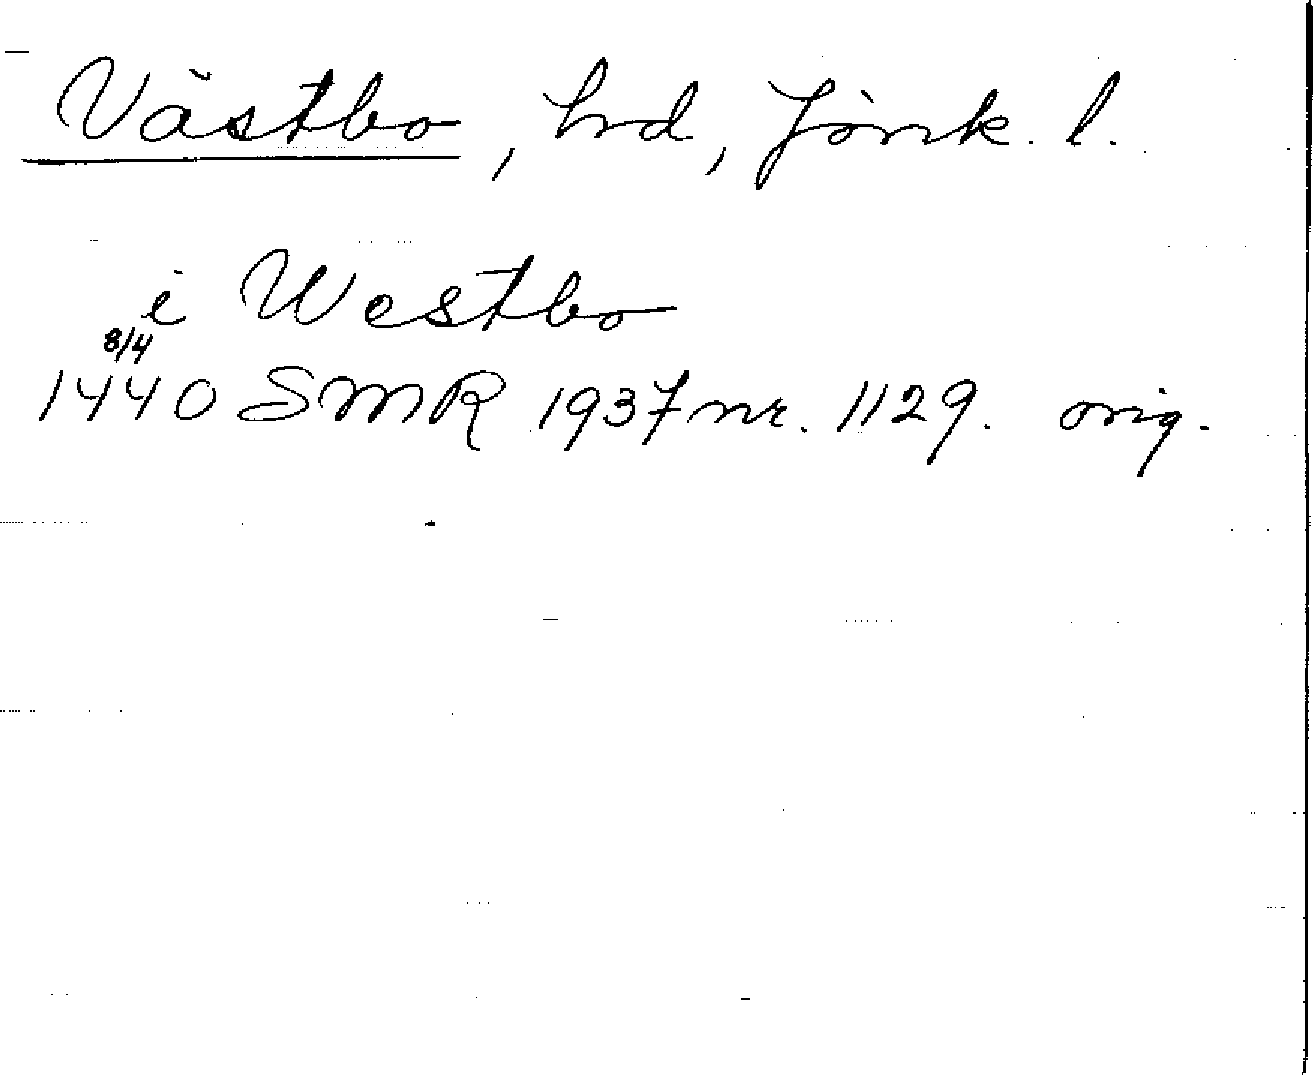 Västbo, hrd, Jönk. l.
i Westbo
8/4
1440 SMR 1937 nr. 1129. orig.